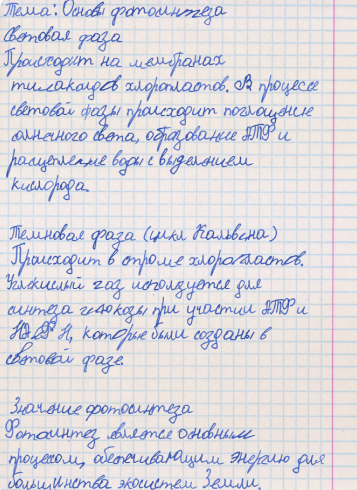 Тема: Основы фотосинтеза
Световая фаза
Происходит на мембранах
тилакоидов хлоропластов. В процессе
световой фазы происходит поглощение
солнечного света, образование АТФ и
расщепление воды с выделением
кислорода.
Темновая фаза (цикл Кальвина)
Происходит в строме хлоропластов.
Углекислый газ используется для
синтеза глюкозы при участии АТФ и
НАДФ Н, которые были созданы в
световой фазе.
Значение фотосинтеза
Фотосинтез является основным
процессом, обеспечивающим энергию для
большинства экосистем Земли.